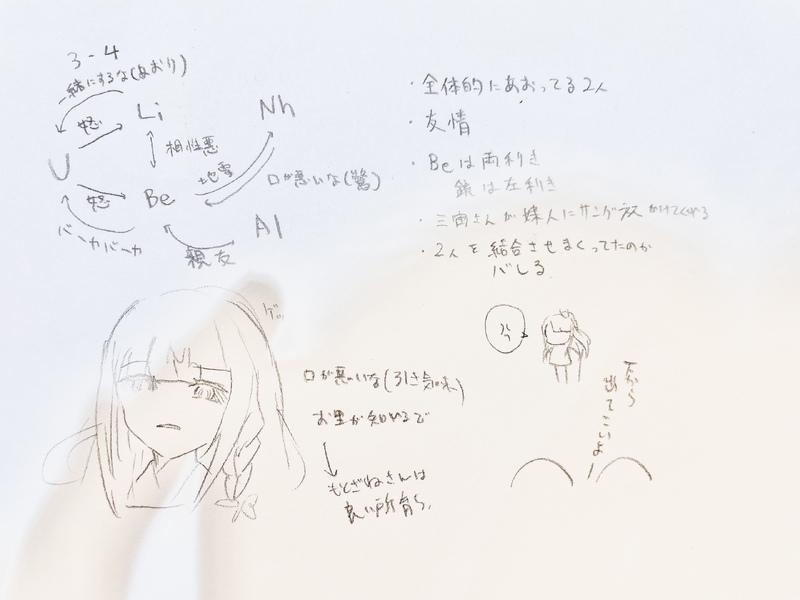 3-4
一緒にするな(あおり)
Li
Nh
怒
相性悪
U
地雷
口が悪いな(驚)
怒
Be
バーカバーカ
Al
親友
・全体的にあおってる2人
・友情
・Beは両利き
銃は左利き
・三宙さんが嫁人にサングラスかけてくれる
・2人を結合させまくってたのか
バレる
ゲッ
口が悪いな(引き気味)
お里が知れるで
もとざねさんは
良い所育ち。
だから
出てこいよ!